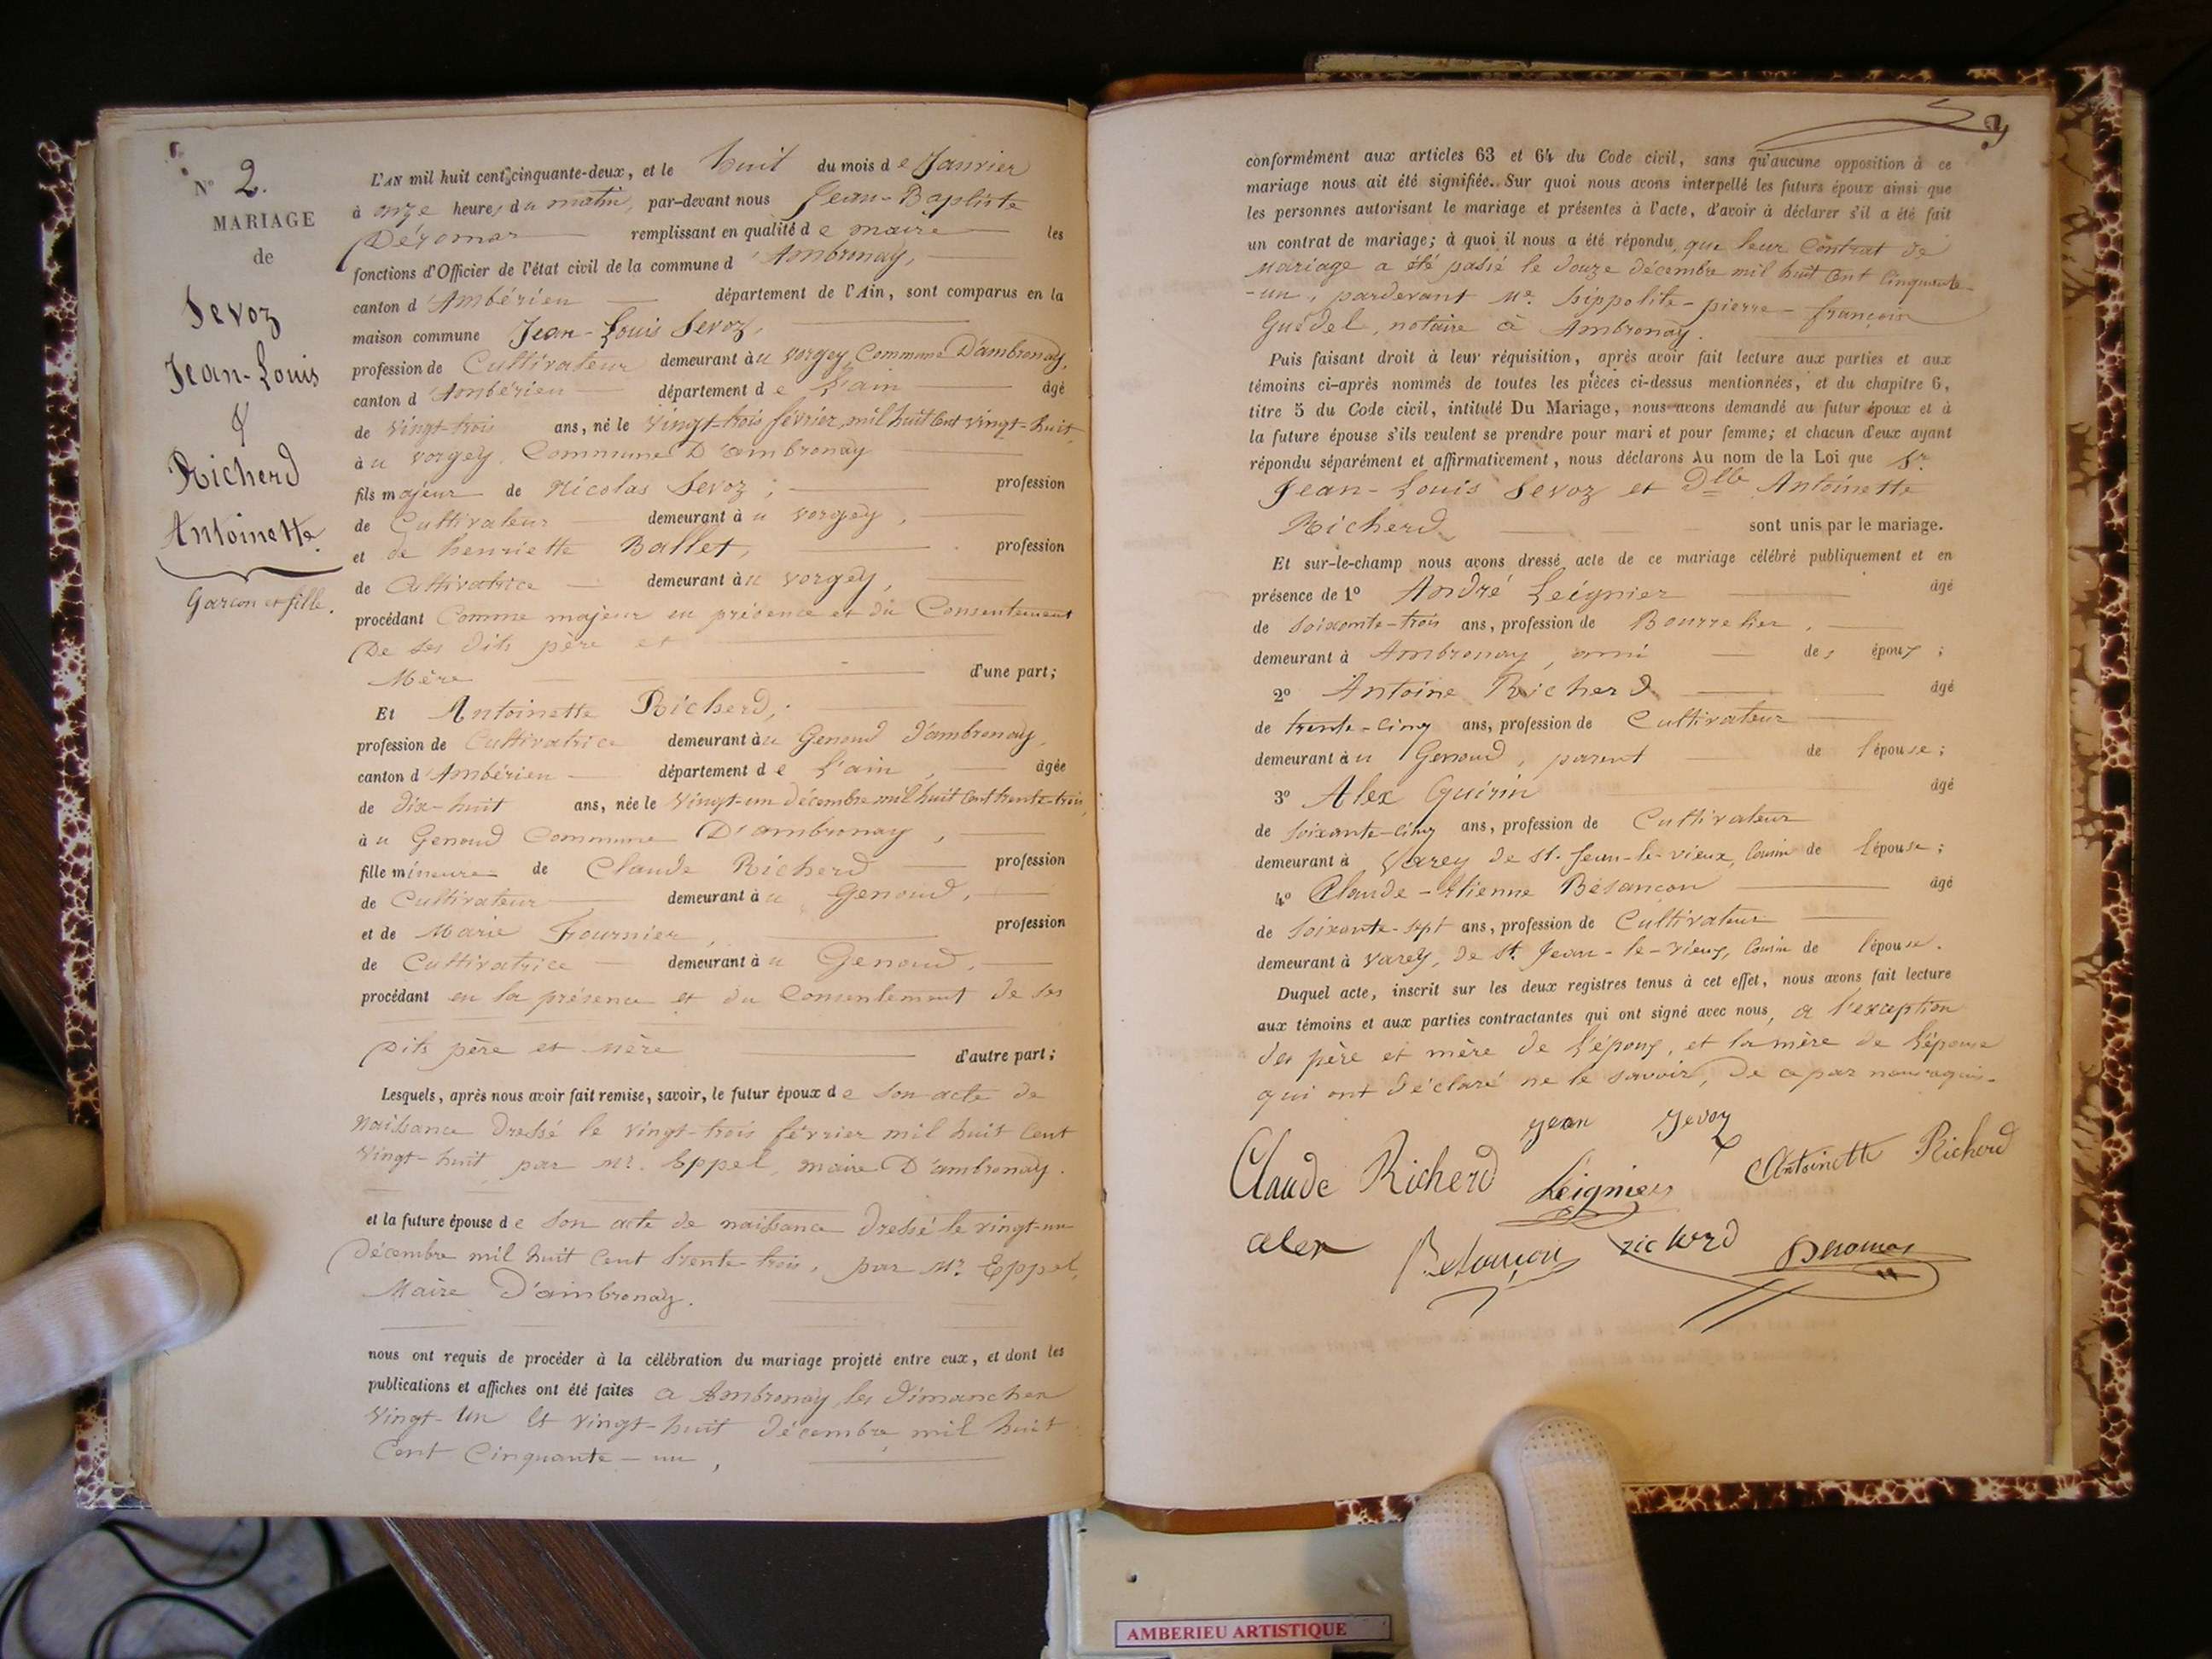 N° 2.
MARIAGE
de
Sevoz
Jean-Louis
&
Richerd
Antoinette.
Garçon et fille.
L'AN mil huit cent cinquante-deux, et le huit du mois de Janvier
à onze heures du matin, par-devant nous Jean-Baptiste
Déromas remplissant en qualité de maire les
fonctions d'Officier de l'état civil de la commune d'Ambronay,
canton d'Ambérieu département de l'Ain, sont comparus en la
maison commune Jean-Louis Sevoz,
profession de Cultivateur demeurant au vorgey Commune D'ambronay,
canton d'Ambérieu département de L'ain âgé
de vingt-trois ans, né le vingt-trois février mil huit Cent vingt-huit,
au vorgey Commune D'ambronay
fils majeur de Nicolas Sevoz ; profession
de Cultivateur demeurant au vorgey,
et de henriette Ballet, profession
de Cultivatrice demeurant au vorgey,
procédant Comme majeur en présence et du Consentement
De ses dits père et
Mère d'une part;
Et Antoinette Richerd,
profession de Cultivatrice demeurant au Genoud d'ambronay,
canton d'Ambérieu département de L'ain, âgée
de dix-huit ans, née le vingt-un décembre mil huit Cent trente-trois,
au Genoud Commune D'ambronay,
fille mineure de Claude Richerd profession
de Cultivateur demeurant au Genoud,
et de Marie Fournier, profession
de Cultivatrice demeurant au Genoud,
procédant en la présence et du Consentement de ses
Dits père et Mère d'autre part;
Lesquels, après nous avoir fait remise, savoir, le futur époux de son acte de
Naissance dressé le vingt-trois février mil huit Cent
vingt-huit par Mr. Eppel, maire D'ambronay.
et la future épouse de son acte de naissance dressé le vingt-un
Décembre mil huit Cent trente-trois, par Mr. Eppel,
Maire D'ambronay.
nous ont requis de procéder à la célébration du mariage projeté entre eux, et dont les
publications et affiches ont été faites a Ambronay les dimanches
vingt-un et vingt-huit décembre mil huit
Cent Cinquante-un,
conformément aux articles 63 et 64 du Code civil, sans qu'aucune opposition à ce
mariage nous ait été signifiée. Sur quoi nous avons interpellé les futurs époux ainsi que
les personnes autorisant le mariage et présentes à l'acte, d'avoir à déclarer s'il a été fait
un contrat de mariage; à quoi il nous a été répondu que leur Contrat de
Mariage a été passé le douze décembre mil huit Cent Cinquante-
-un, pardevant Me. hippolite-pierre-françois
Guédel, notaire à Ambronay.
Puis faisant droit à leur réquisition, après avoir fait lecture aux parties et aux
témoins ci-après nommés de toutes les pièces ci-dessus mentionnées, et du chapitre 6,
titre 5 du Code civil, intitulé Du Mariage, nous avons demandé au futur époux et à
la future épouse s'ils veulent se prendre pour mari et pour femme; et chacun d'eux ayant
répondu séparément et affirmativement, nous déclarons Au nom de la Loi que Sr.
Jean-Louis Sevoz et Dlle Antoinette
Richerd sont unis par le mariage.
Et sur-le-champ nous avons dressé acte de ce mariage célébré publiquement et en
présence de 1° André Leignier âgé
de soixante-trois ans, profession de Bourrelier,
demeurant à Ambronay, ami des époux;
2° Antoine Richerd âgé
de trente-cinq ans, profession de Cultivateur
demeurant au Genoud, parent de l'épouse;
3° Alex Guirin âgé
de soixante-cinq ans, profession de Cultivateur
demeurant à Varey de St. Jean-le-vieux, Cousin de l'épouse;
4° Claude-Etienne Besançon âgé
de soixante-sept ans, profession de Cultivateur
demeurant à Varey, de St. Jean-le-vieux, Cousin de l'épouse.
Duquel acte, inscrit sur les deux registres tenus à cet effet, nous avons fait lecture
aux témoins et aux parties contractantes qui ont signé avec nous, a l'exception
des père et mère de L'époux, et la mère de L'épouse
qui ont déclaré ne le savoir, de ce par nous requis-
jean Sevoz
Claude Richerd Leignier Antoinette Richerd
alex Besançon richerd Deromas
AMBERIEU ARTISTIQUE